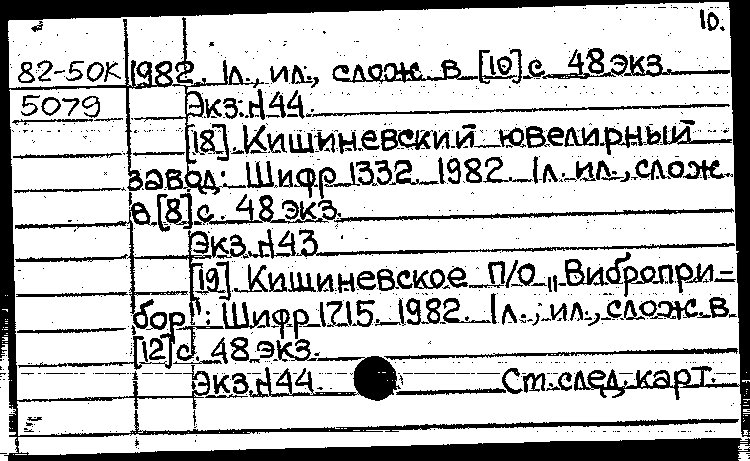 10.
82-50К 1982. 1л., ил., слож. в [10] с 48 экз.
5079 Экз. №44.
[18]. Кишиневский ювелирный
завод: Шифр 1332. 1982. 1л. ил., слож
в [8] с. 48 экз.
Экз. №43
[19]. Кишиневское П/О „Вибропри-
бор": Шифр 1715. 1982. 1л., ил., слож. в
[12] с. 48 экз.
Экз. №44. Ст. след. карт.